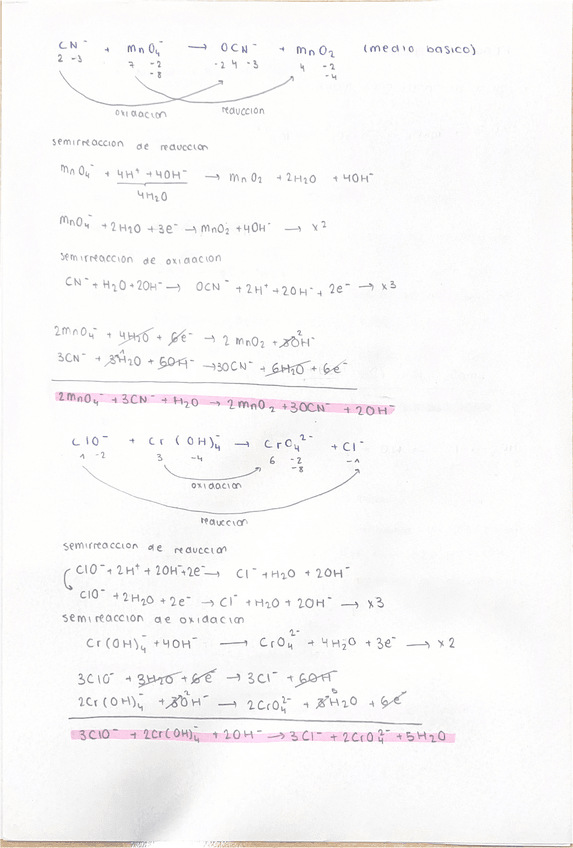 CN⁻ + MnO₄⁻ → OCN⁻ + MnO₂ (medio basico)
2 -3 7 -2 -2 4 -3 4 -2
-8 -4
oxidacion reduccion
semirreaccion de reduccion
MnO₄⁻ + 4H⁺ + 4OH⁻ → MnO₂ + 2H₂O + 4OH⁻
4H₂O
MnO₄⁻ + 2H₂O + 3e⁻ → MnO₂ + 4OH⁻ → x2
semirreaccion de oxidacion
CN⁻ + H₂O + 2OH⁻ → OCN⁻ + 2H⁺ + 2OH⁻ + 2e⁻ → x3
2MnO₄⁻ + 4H₂O + 6e⁻ → 2MnO₂ + 8OH⁻ 2
3CN⁻ + 3H₂O + 6OH⁻ → 3OCN⁻ + 6H₂O + 6e⁻
2MnO₄⁻ + 3CN⁻ + H₂O → 2MnO₂ + 3OCN⁻ + 2OH⁻
ClO⁻ + Cr(OH)₄⁻ → CrO₄²⁻ + Cl⁻
1 -2 3 -4 6 -2 -1
-8
oxidacion
reduccion
semirreaccion de reduccion
ClO⁻ + 2H⁺ + 2OH⁻ + 2e⁻ → Cl⁻ + H₂O + 2OH⁻
ClO⁻ + 2H₂O + 2e⁻ → Cl⁻ + H₂O + 2OH⁻ → x3
semirreaccion de oxidacion
Cr(OH)₄⁻ + 4OH⁻ → CrO₄²⁻ + 4H₂O + 3e⁻ → x2
3ClO⁻ + 3H₂O + 6e⁻ → 3Cl⁻ + 6OH
2Cr(OH)₄⁻ + 8OH⁻ 2 → 2CrO₄²⁻ + 8H₂O 5 + 6e⁻
3ClO⁻ + 2Cr(OH)₄⁻ + 2OH⁻ → 3Cl⁻ + 2CrO₄²⁻ + 5H₂O